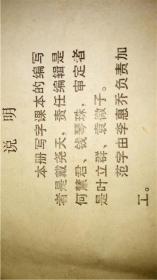 说明
本册写字课本的编写
者是戴尧天，责任编辑是
何慧君、钱琴珠，审定者
是叶立群、袁微子。
范字由李惠乔负责加
工。